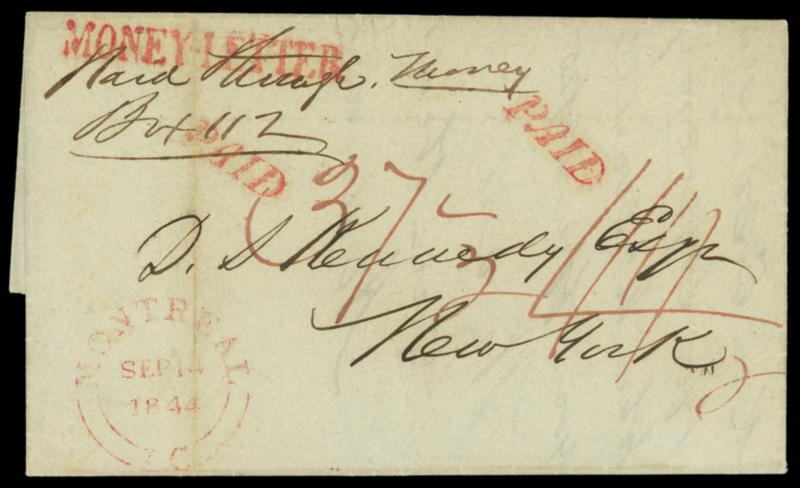 MONEY-LETTER
Paid through. Money
Box 112
PAID
PAID
37
D. S Kennedy Esqr
New York
MONTREAL
SEP 14
1844
L.C